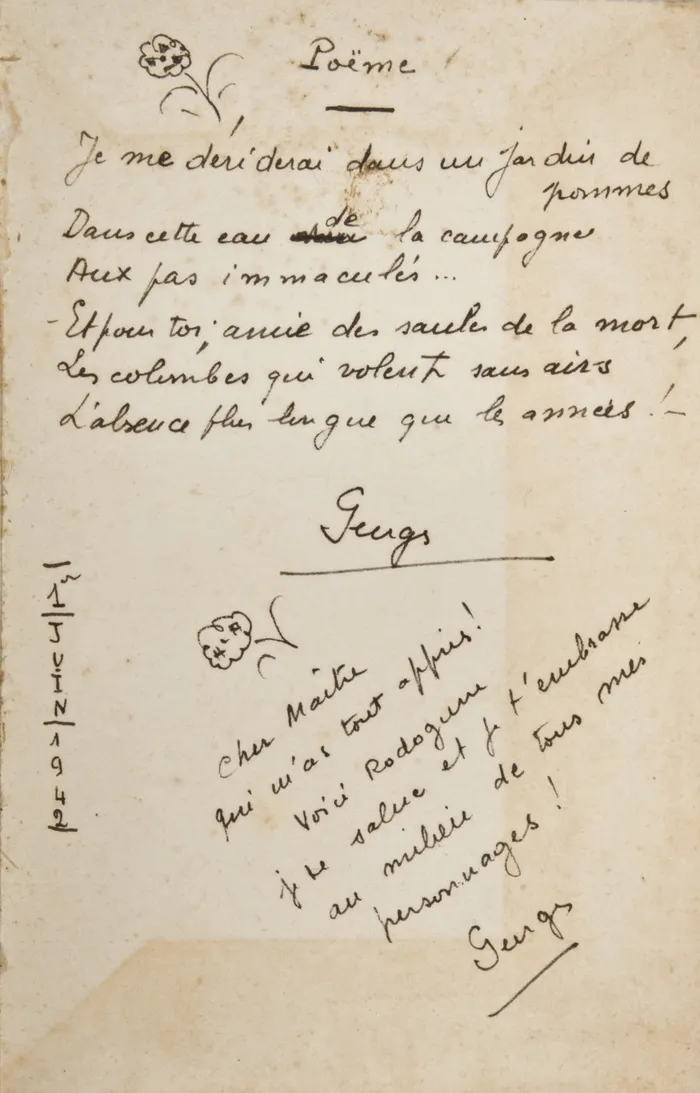 Poëme
Je me dériderai dans un jardin de
pommes
Dans cette eau de la campagne
Aux pas immaculés...
- Et pour toi, amie des saules de la mort,
Les colombes qui volent sans airs
L'absence plus longue que les années ! -
Georges
1er JUIN 1942
Cher Maître
qui m'as tout appris !
Voici Rodogune
je te salue et je t'embrasse
au milieu de tous mes
personnages !
Georges